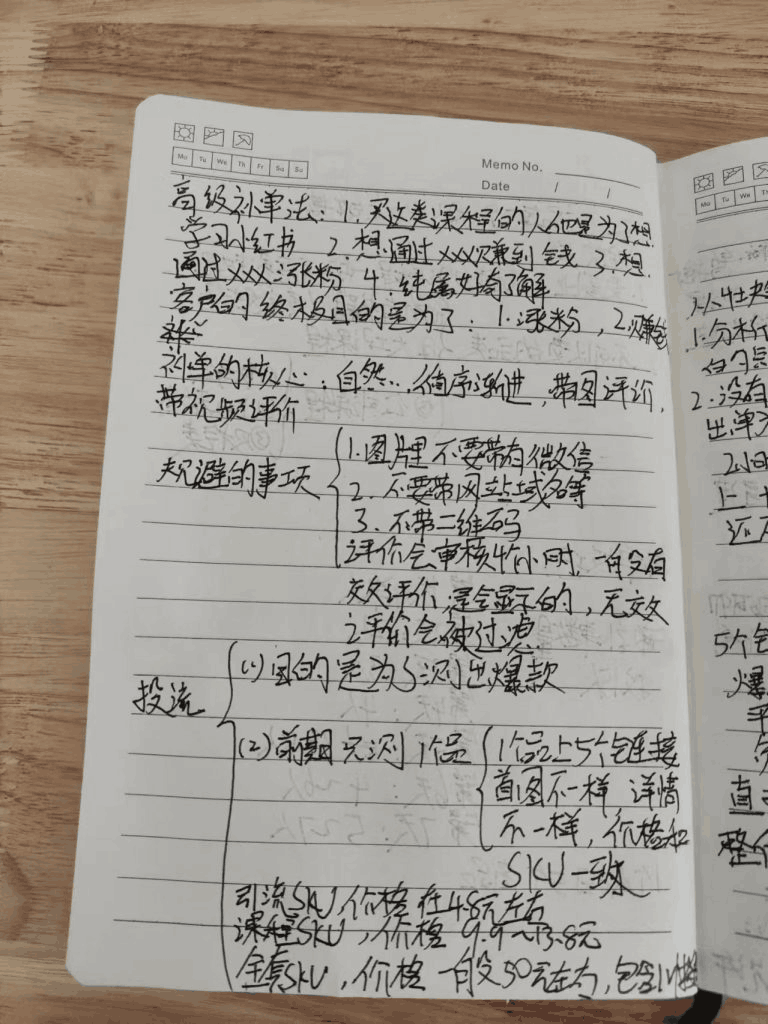 Memo No.
Date / /
Mo Tu We Th Fr Sa Su
高级补单法：1. 买这类课程的人他是为了想
学习小红书 2. 想通过xxx赚到钱 3. 想
通过xxx涨粉 4. 纯属好奇了解
客户的终极目的是为了：1. 涨粉，2. 赚钱
补单的核心：自然，循序渐进，带图评价，
带视频评价
规避的事项
1. 图片里不要带有微信
2. 不要带网站域名等
3. 不带二维码
评价会审核4个小时，一般没有
效评价，是会显示的，无效
评价会被过滤
投流
(1) 目的是为了测出爆款
(2) 前期先测1个品
1个品上5个链接
首图不一样 详情
不一样，价格和
SKU一致
引流SKU，价格在4.8元左右
课程SKU，价格9.9~13.8元
全套SKU，价格一般50元左右，包含
Mo Tu We Th
1. 分析
2. 没有
出单
2小时
还
5个
爆
直
整个